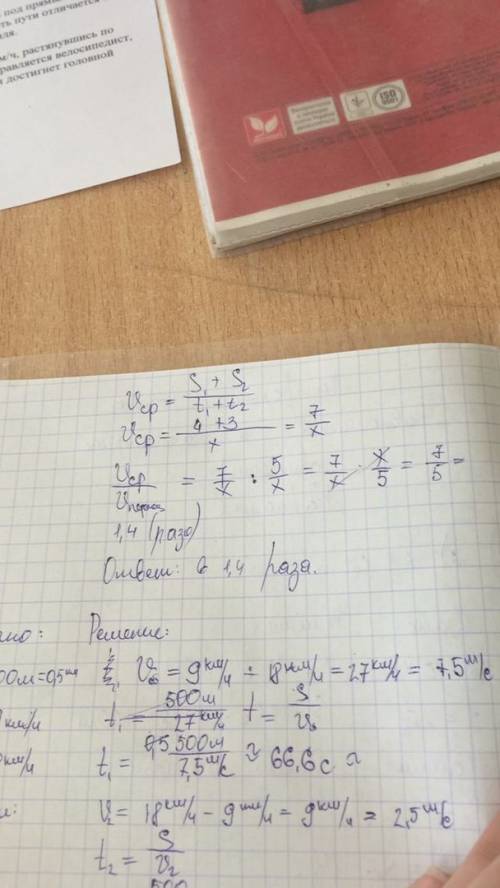 под прямы
ть пути отличается
м/ч, растянувшись по
равляется велосипедист,
достигнет головной
ISO
9001
Vср = S₁ + S₂ / t₁ + t₂
Vср = 4 + 3 / x = 7/x
Vср / V = 7/x : 5/x = 7/x · x/5 = 7/5 =
1,4 (раза)
Ответ: в 1,4 раза.
но: Решение:
00м=0,5км V = 9 км/ч + 18 км/ч = 27 км/ч = 7,5 м/с
км/ч t₁ = 500м / 27 км/ч t = S/V
км/ч t₁ = 500м / 7,5 м/с ≈ 66,6 с ≈
V₂ = 18 км/ч - 9 км/ч = 9 км/ч = 2,5 м/с
t₂ = S / V₂
500